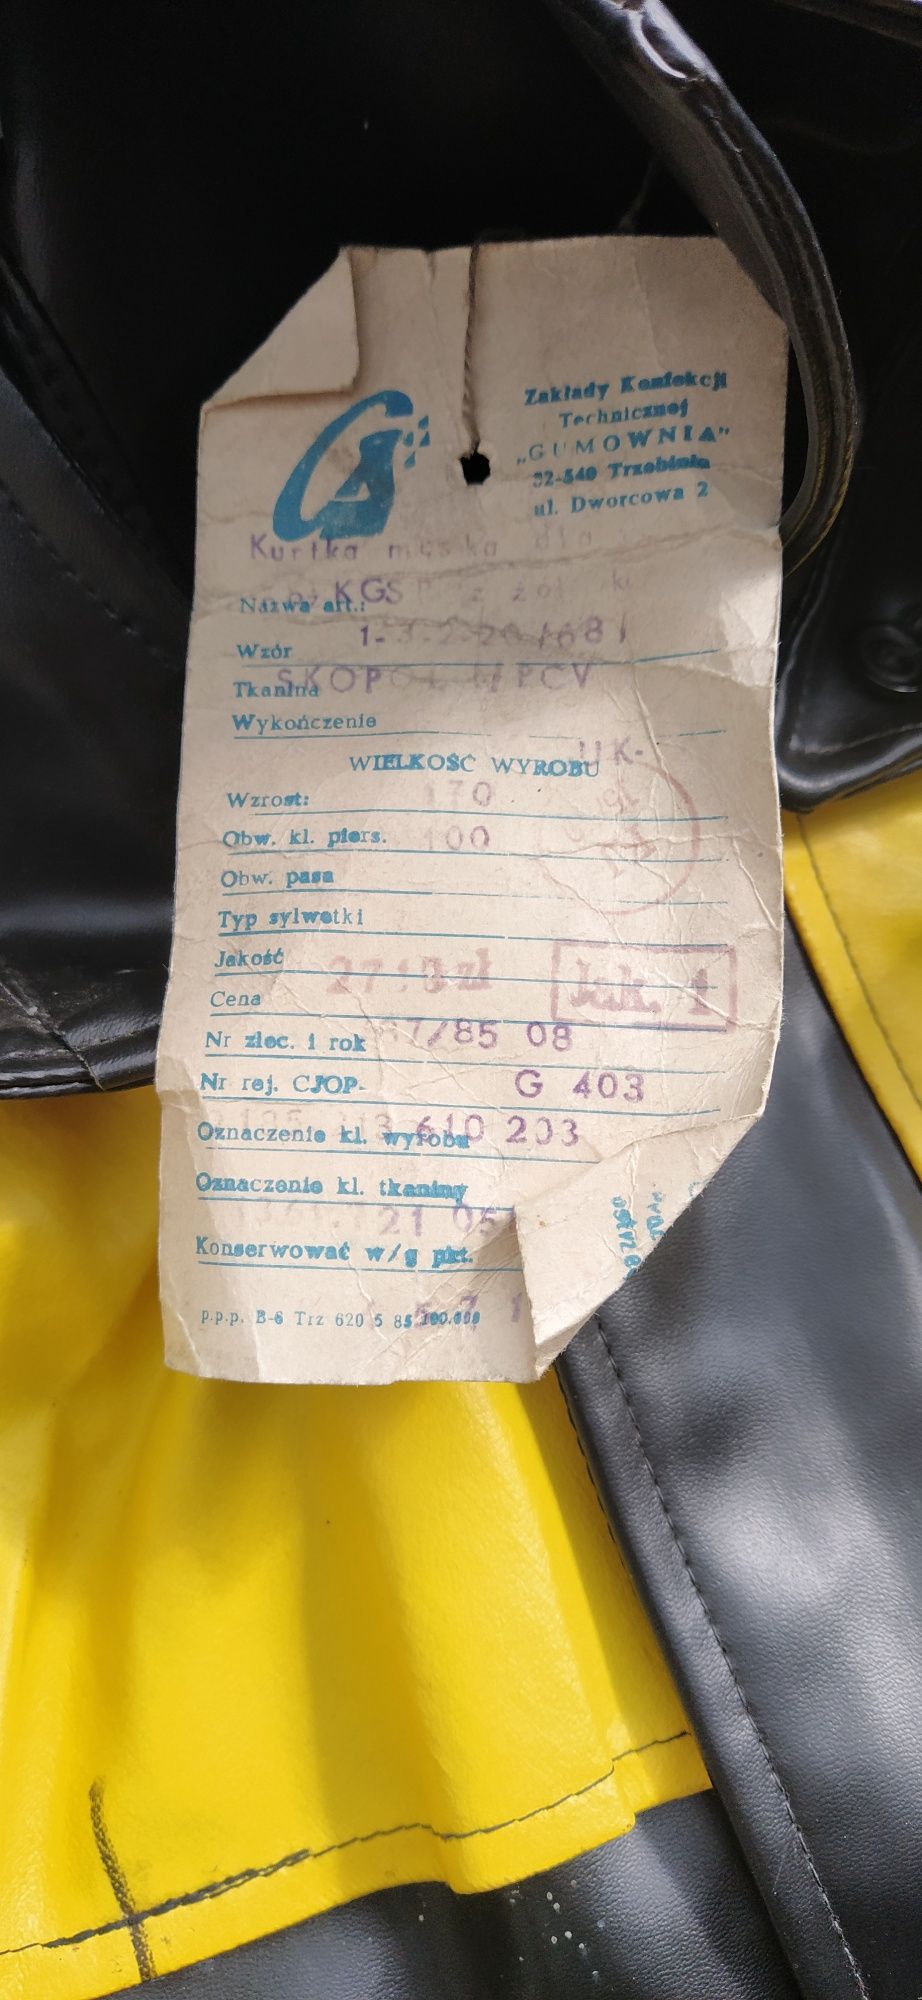 Zakłady Konfekcji
Technicznej
„GUMOWNIA"
32-540 Trzebinia
ul. Dworcowa 2
Kurtka męska dla
Nazwa art.: KGS z
Wzór
Tkanina SKOP PCV
Wykończenie
WIELKOŚĆ WYROBU
Wzrost: 170
Obw. kl. piers. 100
Obw. pasa
Typ sylwetki
Jakość Jak. 1
Cena
Nr zlec. i rok 7/85 08
Nr rej. CJOP- G 403
Oznaczenie kl. wyrobu 610 203
Oznaczenie kl. tkaniny
21
Konserwować w/g pkt.
p.p.p. B-6 Trz 620 5 85 100.000